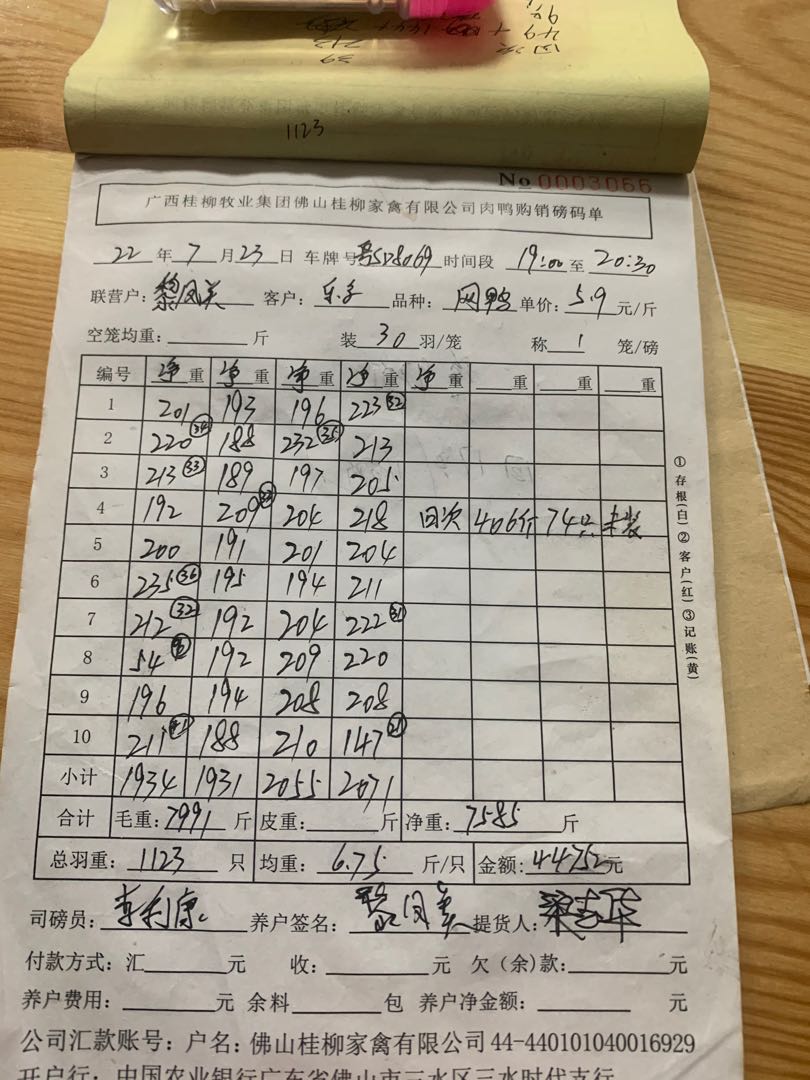 1123
No 0003066
广西桂柳牧业集团佛山桂柳家禽有限公司肉鸭购销磅码单
22 年 7 月 23 日 车牌号 时间段 19:00 至 20:30
联营户: 黎凤美 客户: 品种: 网鸭 单价: 5.9 元/斤
空笼均重: 斤 装 30 羽/笼 称 1 笼/磅
编号 净重 净重 净重 净重 净重 重 重 重
1 201 193 196 223 32
2 220 34 188 232 35 213
3 213 33 189 197 205
4 192 209 204 218 回次 406斤 74只 未装
5 200 191 201 204
6 235 36 195 194 211
7 212 32 192 204 222 31
8 54 192 209 220
9 196 194 208 208
10 211 188 210 147 21
小计 1934 1931 2055 2071
合计 毛重: 7991 斤 皮重: 斤 净重: 7585 斤
总羽重: 1123 只 均重: 6.75 斤/只 金额: 44752元
司磅员: 李利康 养户签名: 黎凤美 提货人: 梁志华
付款方式: 汇 元 收: 元 欠(余)款: 元
养户费用: 元 余料 包 养户净金额: 元
公司汇款账号: 户名: 佛山桂柳家禽有限公司 44-440101040016929
开户行: 中国农业银行广东省佛山市三水区三水时代支行
①存根(白)②客户(红)③记账(黄)